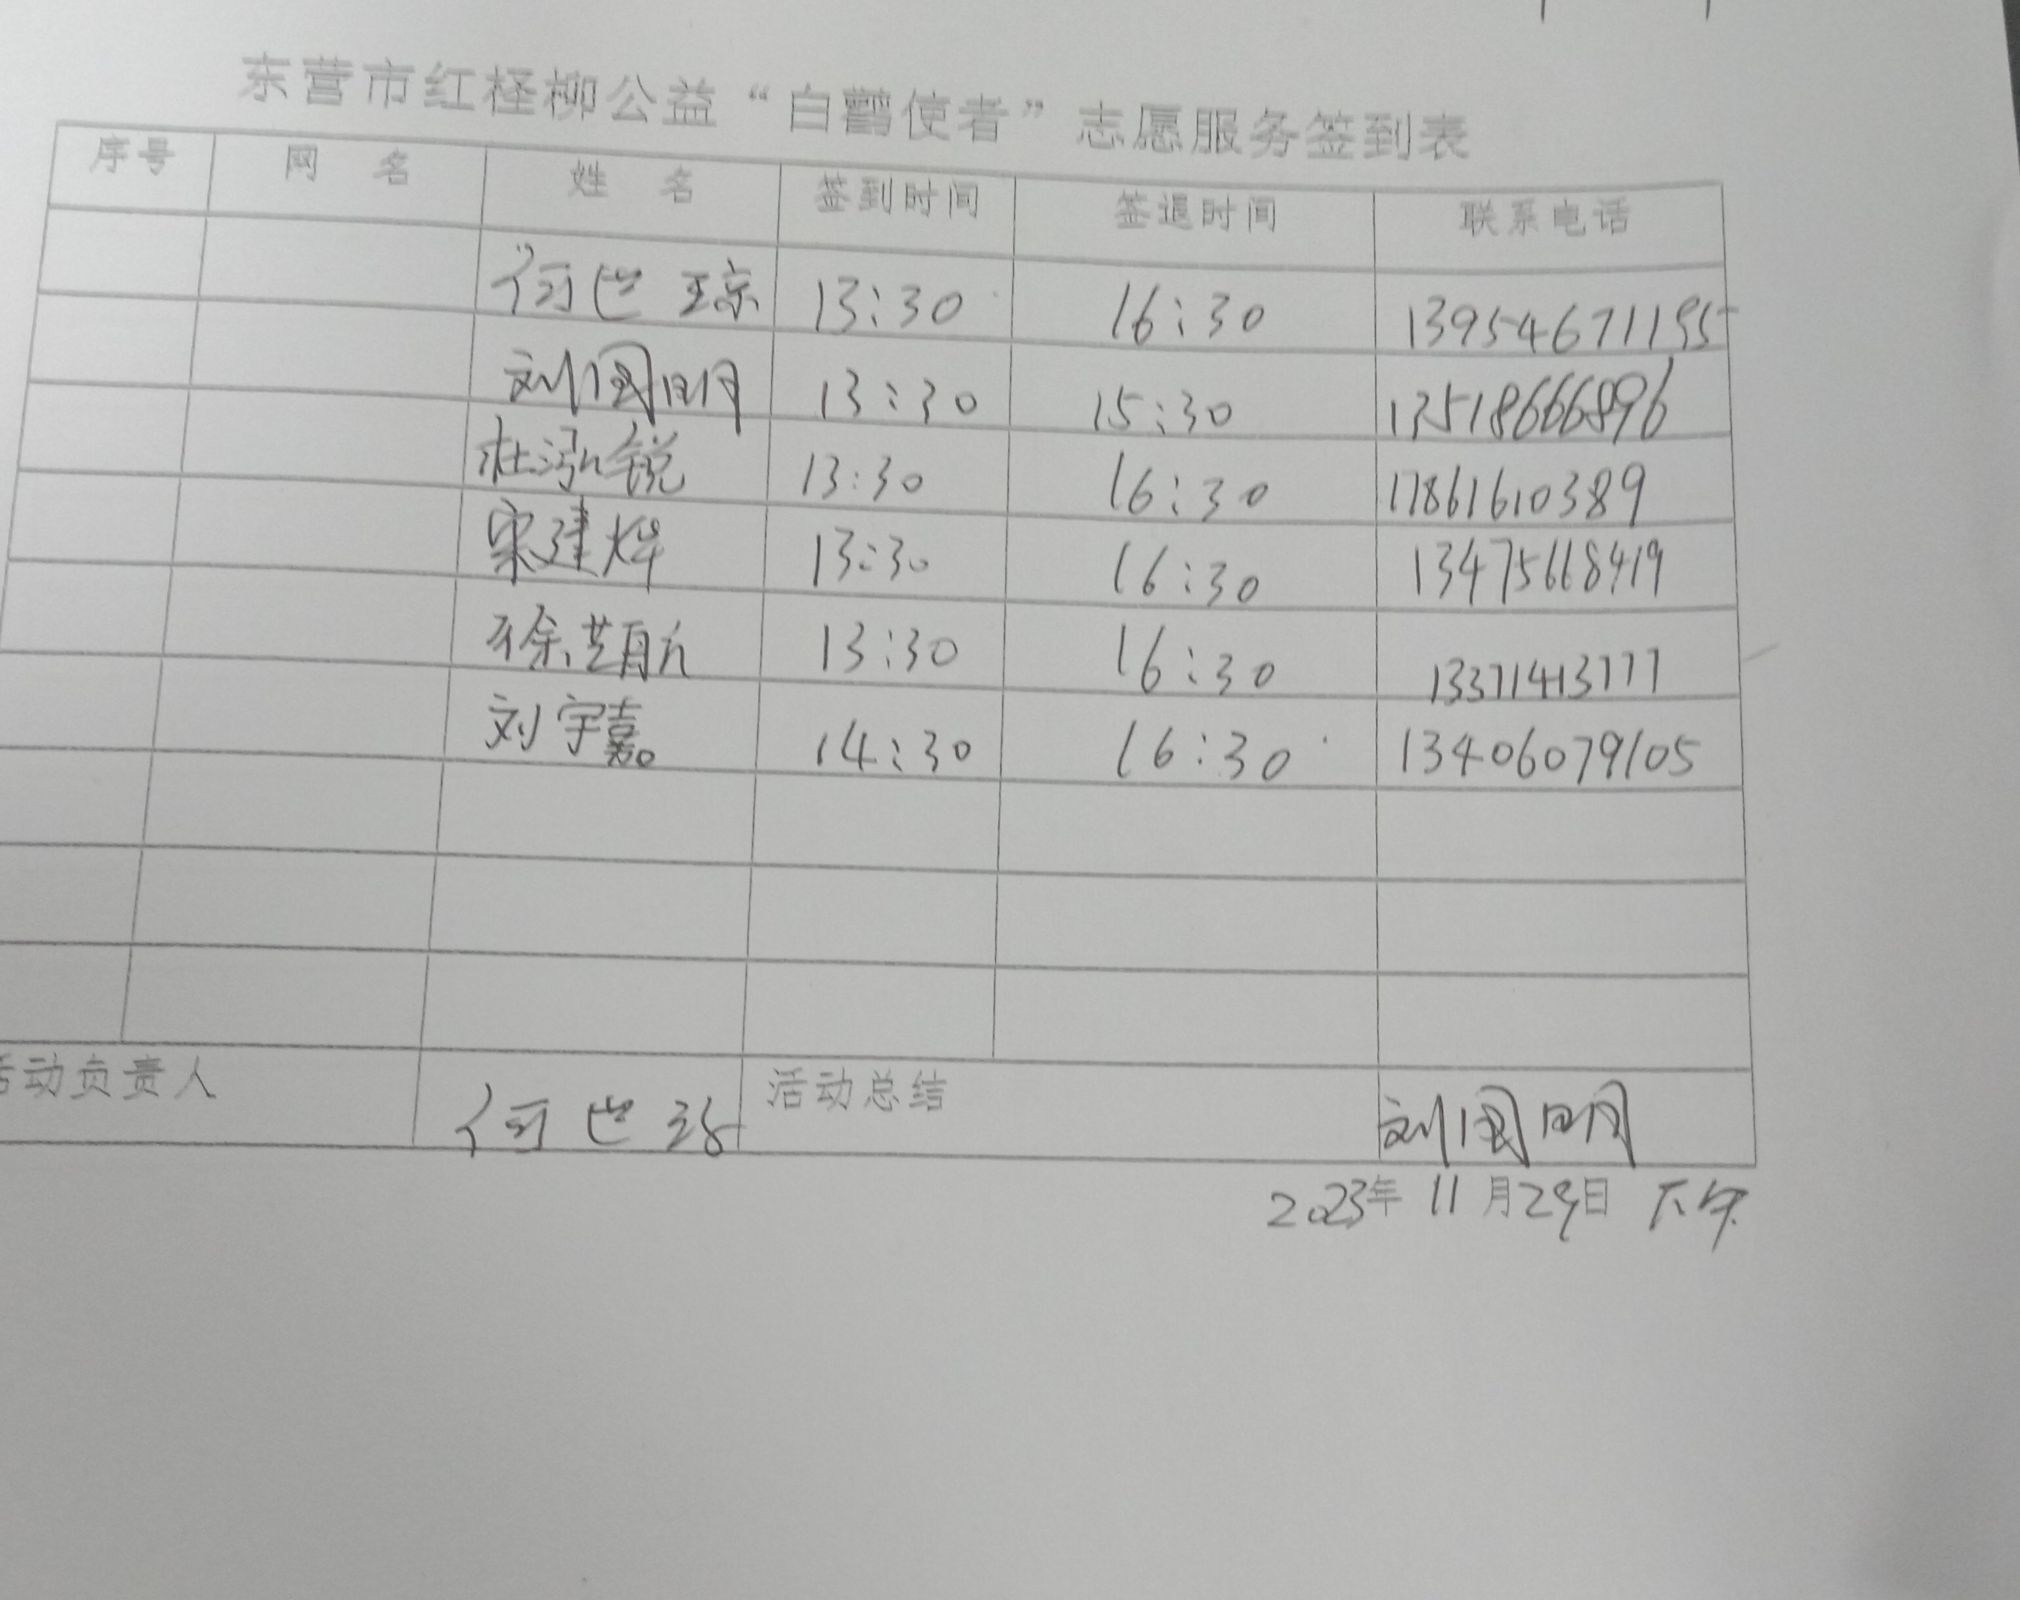 东营市红柽柳公益“白鹳使者”志愿服务签到表
序号 网 名 姓 名 签到时间 签退时间 联系电话
何世琼 13:30 16:30 13954671195
刘国明 13:30 15:30 13518666896
杜泓锐 13:30 16:30 17861610389
宋建烨 13:30 16:30 13475668419
徐 13:30 16:30 13371413777
刘宇嘉 14:30 16:30 13406079105
活动负责人 何世琼 活动总结 刘国明
2023年 11 月29日 下午